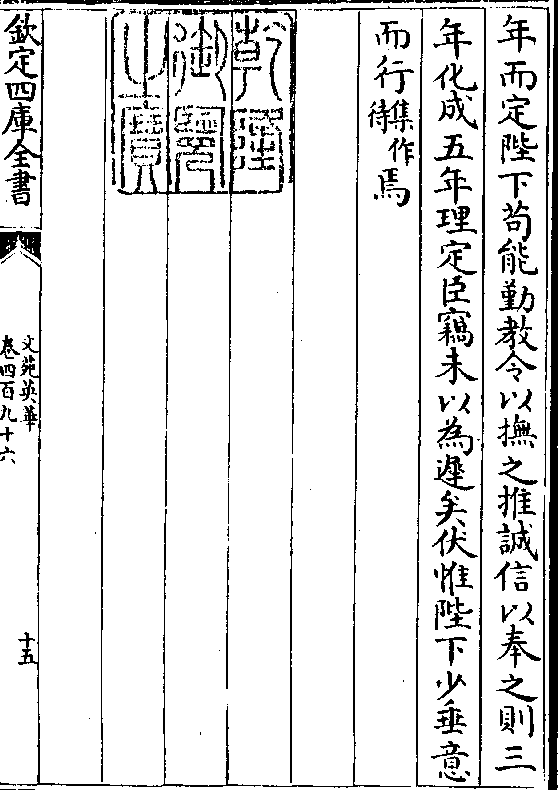 年而定陛下苟能勤教令以撫之推誠信以奉之則三
年化成五年理定臣竊未以為遲矣伏惟陛下少垂意
而行集作待焉
乾隆御覽之寶
欽定四庫全書
文苑英華
卷四百九十六
十五